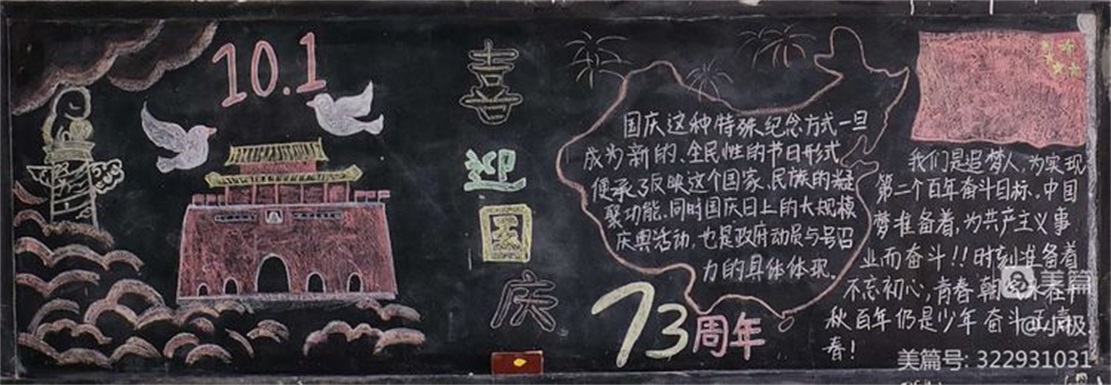 10.1
喜
迎
国
庆
国庆这种特殊纪念方式一旦
成为新的、全民性的节日形式,
便承了反映这个国家、民族的凝
聚功能,同时国庆日上的大规模
庆典活动,也是政府动员与号召
力的具体体现。
73周年
我们是追梦人,为实现
第二个百年奋斗目标、中国
梦准备着,为共产主义事
业而奋斗!!时刻准备着
不忘初心,青春朝
秋百年仍是少年奋斗正青
春!
美篇
@小极
美篇号: 322931031